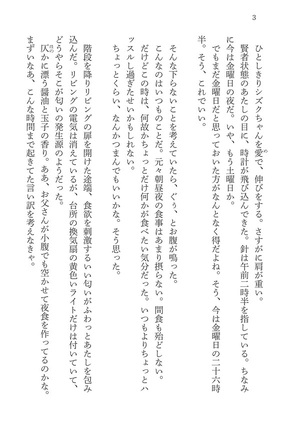 3
ひとしきりシズクちゃんを愛で、伸びをする。さすがに肩が重い。
賢者状態のあたしの目に、時計が飛び込んできた。針は午前二時半を指している。ちなみ
に今は金曜日の夜だ。いや、もう土曜日か。
でもまだ金曜日だと思っておいた方がなんとなく得だよね。そう、今は金曜日の二十六時
半。そう、これでいい。
そんな下らないことを考えていたら、ぐう、とお腹が鳴った。
こんなのはいつものことだ。元々朝昼夜の食事はあまり摂らない。間食も殆どしない。
だけどこの時は、何故かちょっとだけ何かが食べたい気分だった。いつもよりちょっとハ
ッスルし過ぎたせいかもしれない。
ちょっとくらい、なんかつまんでもいいかな。そう思った。
階段を降りリビングの扉を開けた途端、食欲を刺激するいい匂いがふわっとあたしを包み
込んだ。リビングの電気は消えているが、台所の換気扇の黄色いライトだけは付いていて、
どうやらそこが匂いの発生源のようだった。
仄かに漂う醤油と玉子の香り。ああ、お父さんが小腹でも空かせて夜食を作ってるのかな。
まずいなあ、こんな時間まで起きてた言い訳を考えなきゃ。